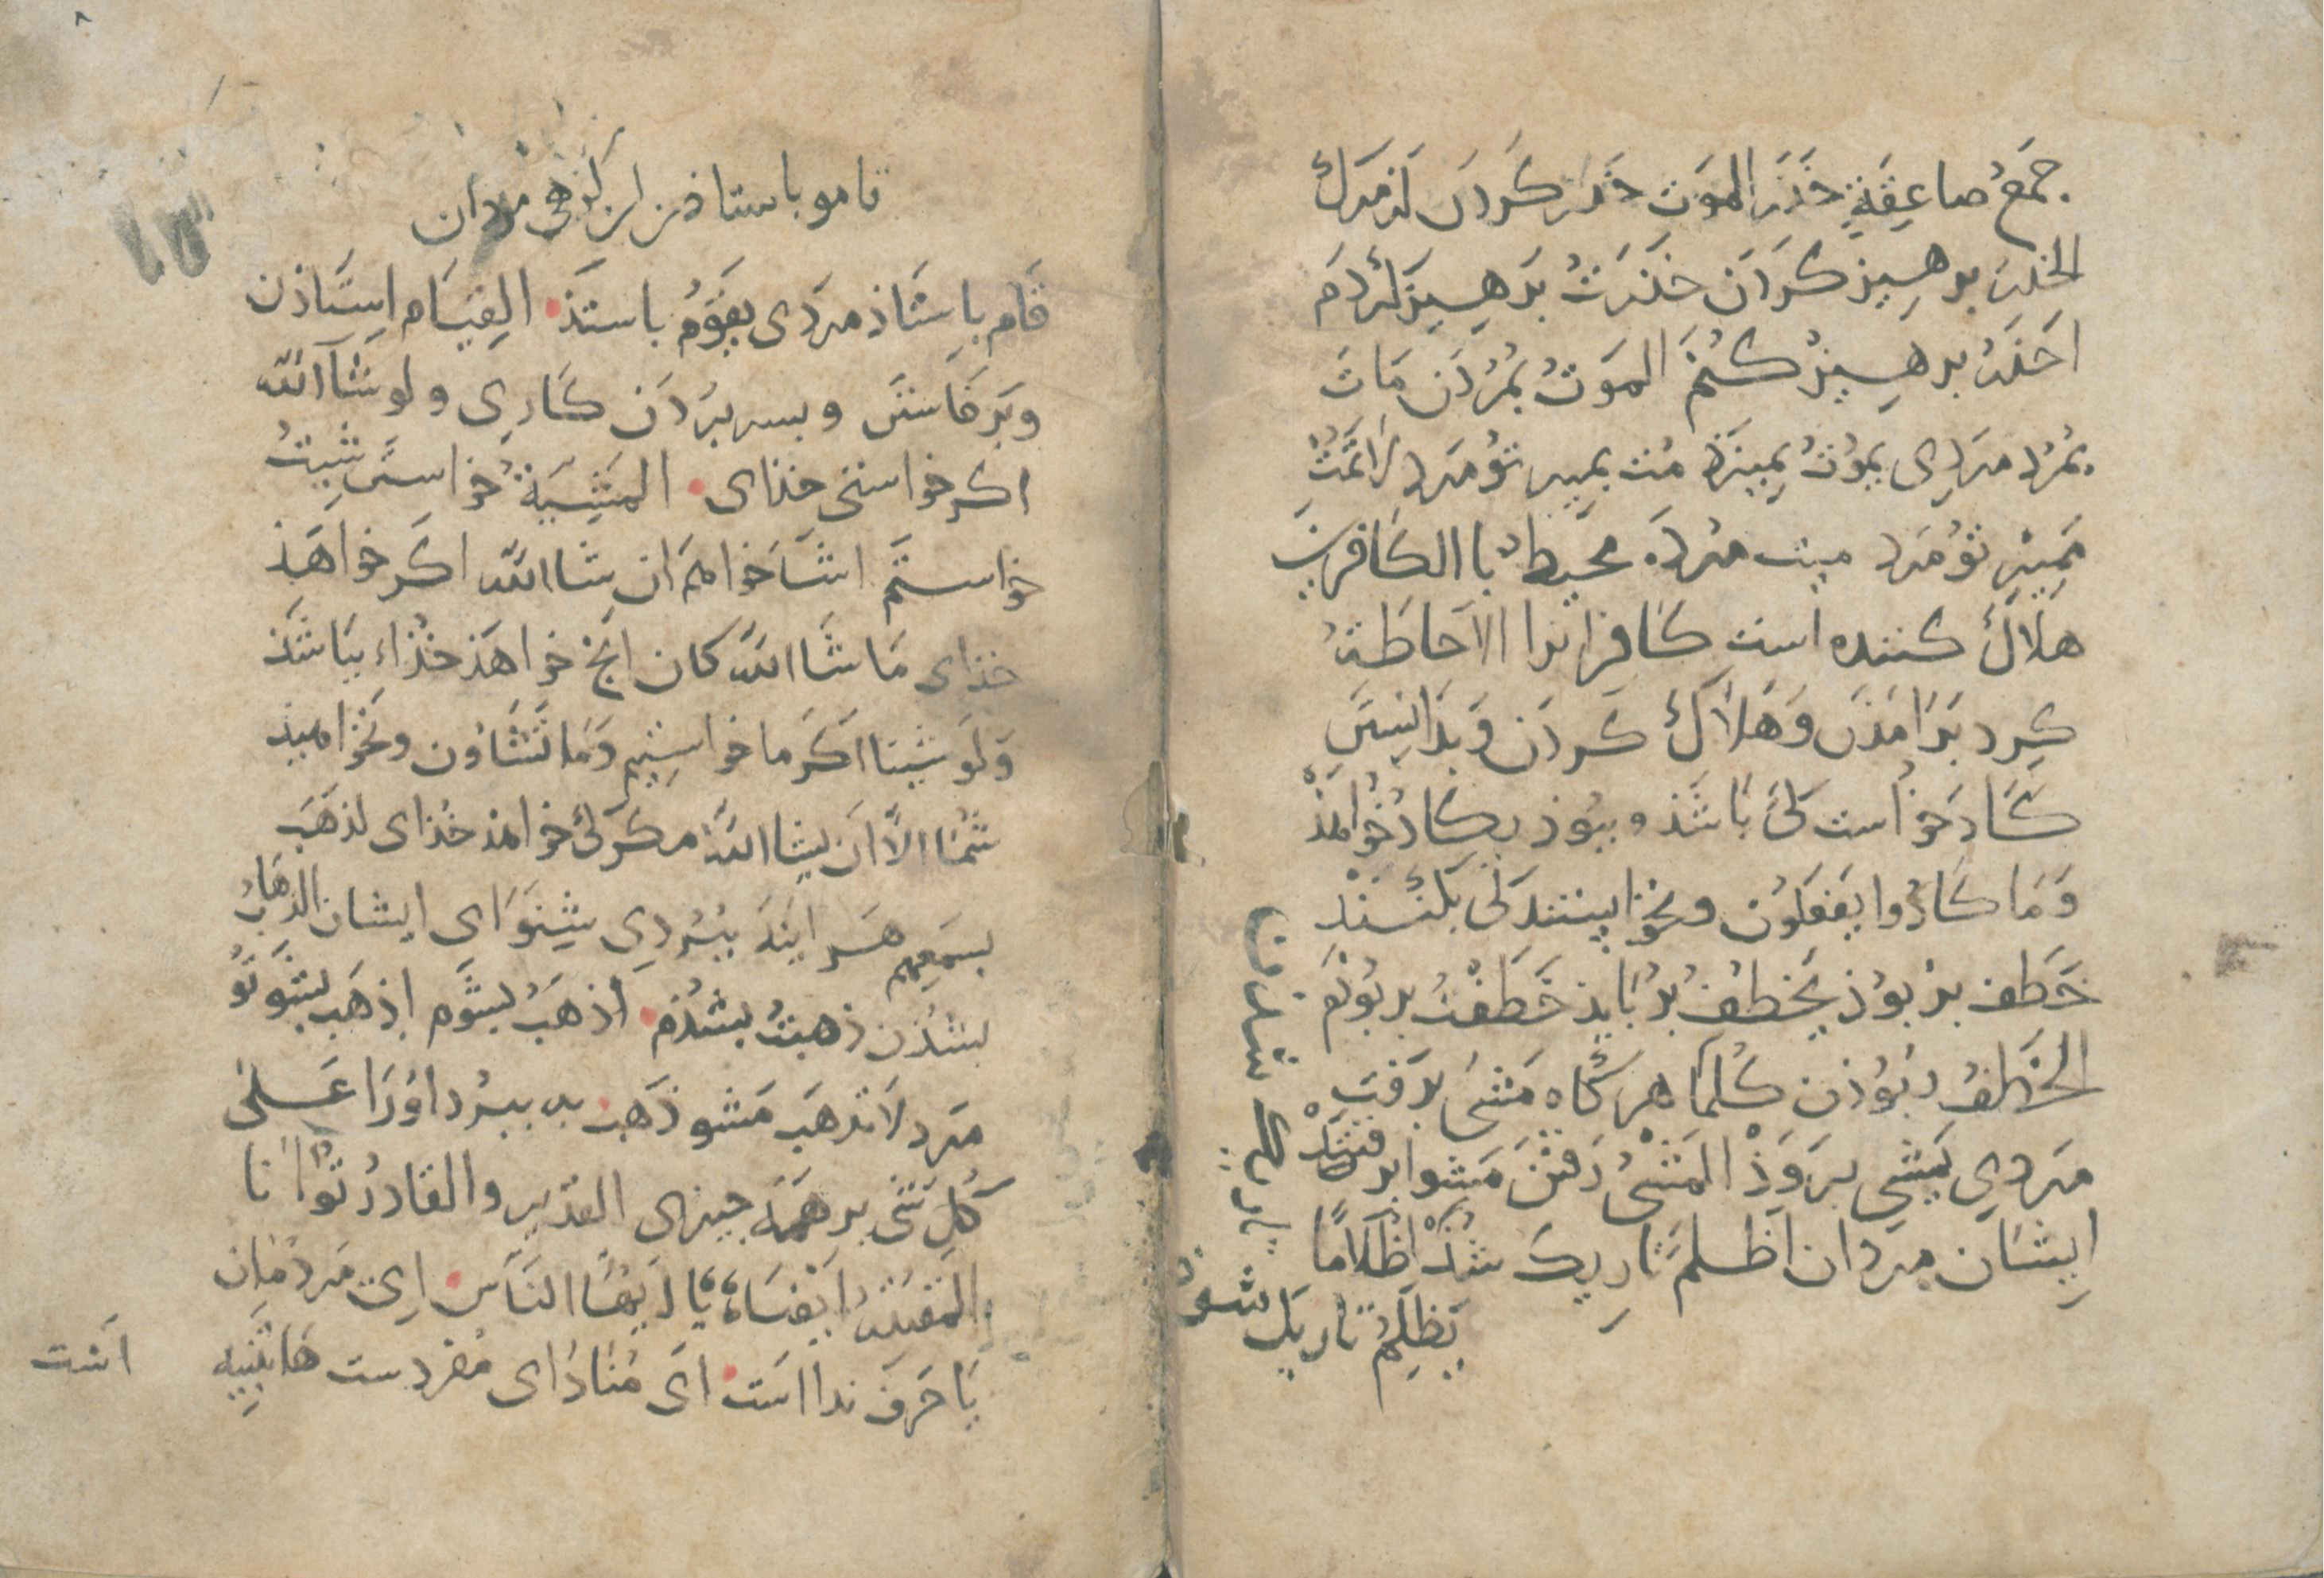 جمع صاعقة حذر الموت حذر كردن از مرك
الحذر برهيز كردن حذرت برهيز كردم
احذر برهيز كنم الموت بمردن مات
بمرد مردى يموت بميرذ مت بمير تو مرد لا تمت
ممير تو مرد ميت مرده محيط با الكافرين
هلاك كننده است كافرانرا الاحاطة
كرد برامذن و هلاك كردن و بدانستن
كاد خواست كى باشذ و ببوذ يكاد خواهذ
وما كادوا يفعلون و نخواستند كى بكنند
خطف بربوذ يخطف بربايذ خطفت بربوذم
الخطف ربوذن كلما هر كاه مشى برفت
مردى يمشى بروذ المشى رفتن مشوا برفتند
ايشان مردان اظلم تاريك شذ اظلاما
تاريك شدن
يظلم تاريك شوذ
قاموا باستاذند ان كروهى مردان
قام باستاذ مردى يقوم باستذ القيام استاذن
وبرخاستن و بسر بردن كارى ولو شآ الله
اكر خواستى خذاى المشية خواستن شيت
خواستم اشا خواهم ان شا الله اكر خواهذ
خذاى ما شا الله كان انج خواهذ خذاء بباشذ
ولو شينا اكر ما خواستيم وما تشاون ونخواهيذ
شما الا ان يشا الله مكر كى خواهذ خذاى لذهب
بسمعهم هر اينه ببردى شنواى ايشان الذهاب
بشذن ذهبت بشذم اذهب بشوم اذهب بشو تو
مرد لا تذهب مشو ذهب به ببرد اورا على
كل شى بر همه جيزى القدير والقادر توانا
المقتدر ايضا يا ايها الناس اى مردمان
يا حرف ندا است اى مناداى مفردست ها تنبيه
است